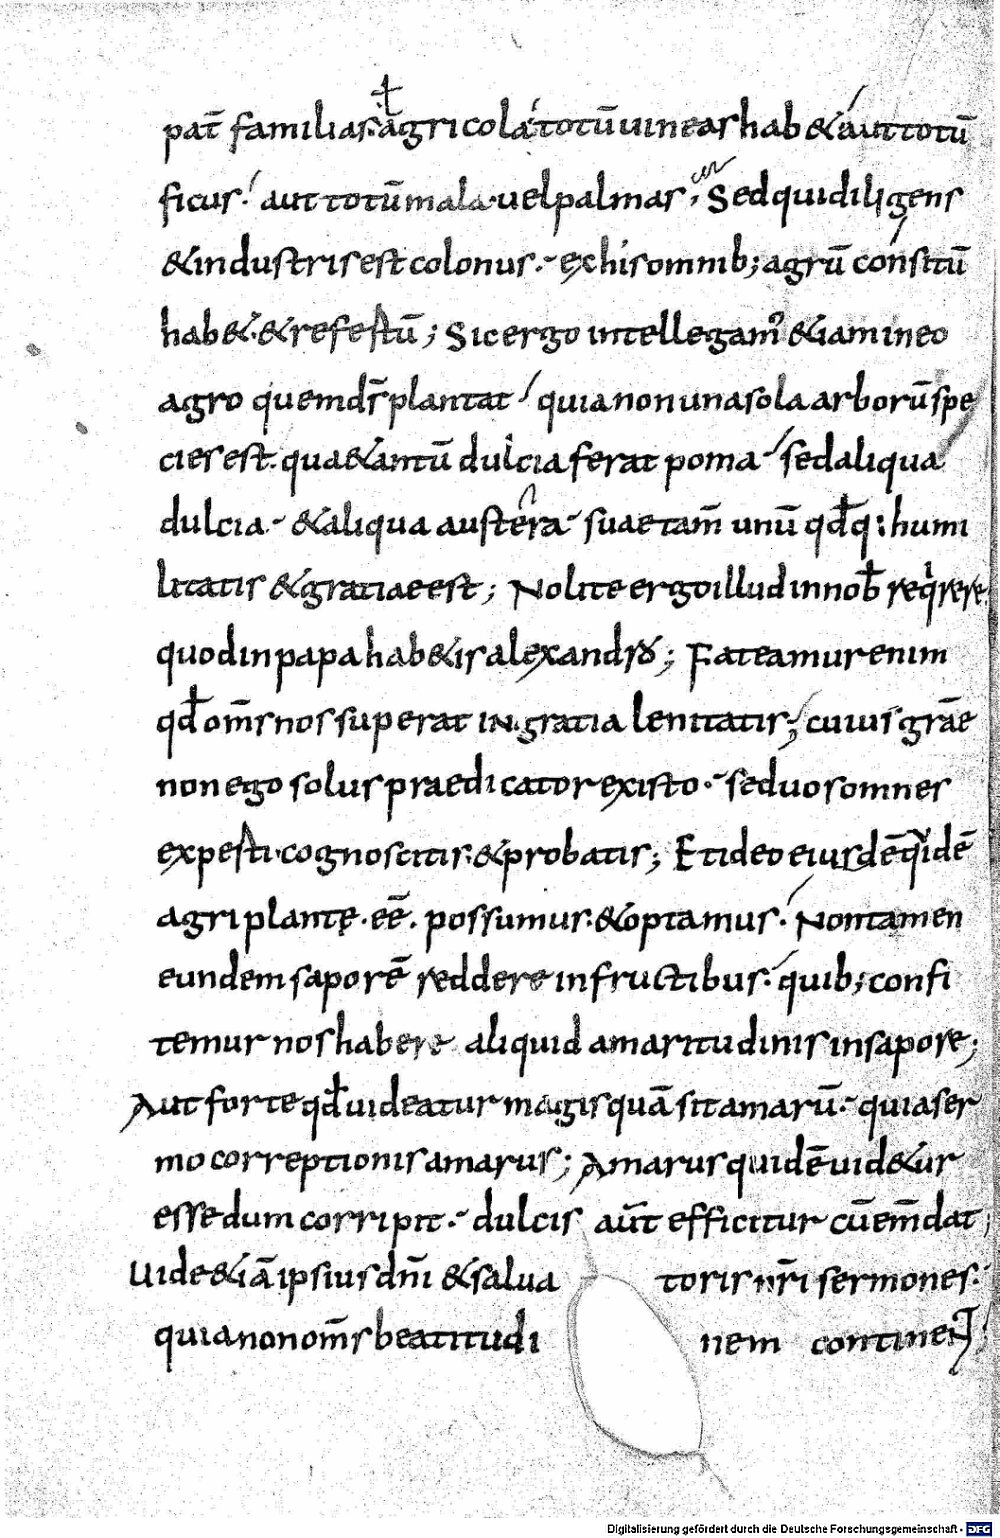 pat̄ familias· ł agricola· totū uineas hab& aut totū
ficus· aut totū mala· uel palmas; Sed qui diligens
& industris est colonus· ex his omnib; agrū consitū
hab&· & refertū; Sic ergo intellegam᾿ &iam in eo
agro quem dr̄ plantat quia non una sola arborū spe
cies est· qua& antū dulcia ferat poma· sed aliqua
dulcia· & aliqua austera· suae tam̄ unū qđq: humi
litatis & gratiae est; Nolite ergo illud in nob̄ reqͥrere
quod in papa hab&is alexandro; Fateamur enim
qđ om̄s nos superat in gratia lenitatis; cuius grāe
non ego solus praedicator existo· sed uos omnes
experti cognoscitis· & probatis; Et ideo eiusdē qͥdē
agri plantę· eē· possumus· & optamus· Non tamen
eundem saporē reddere in fructibus· quib; confi
temur nos habere aliquid amaritudinis in sapore;
Aut forte qđ uideatur magis quā sit amarū· quia ser
mo correptionis amarus; Amarus quidē uid&ur
esse dum corripit· dulcis aūt efficitur cū em̄dat;
Uide &iā ipsius dn̄i & salua toris nr̄i sermones·
quia non om̄s beatitudi nem continent;
Digitalisierung gefördert durch die Deutsche Forschungsgemeinschaft - DFG